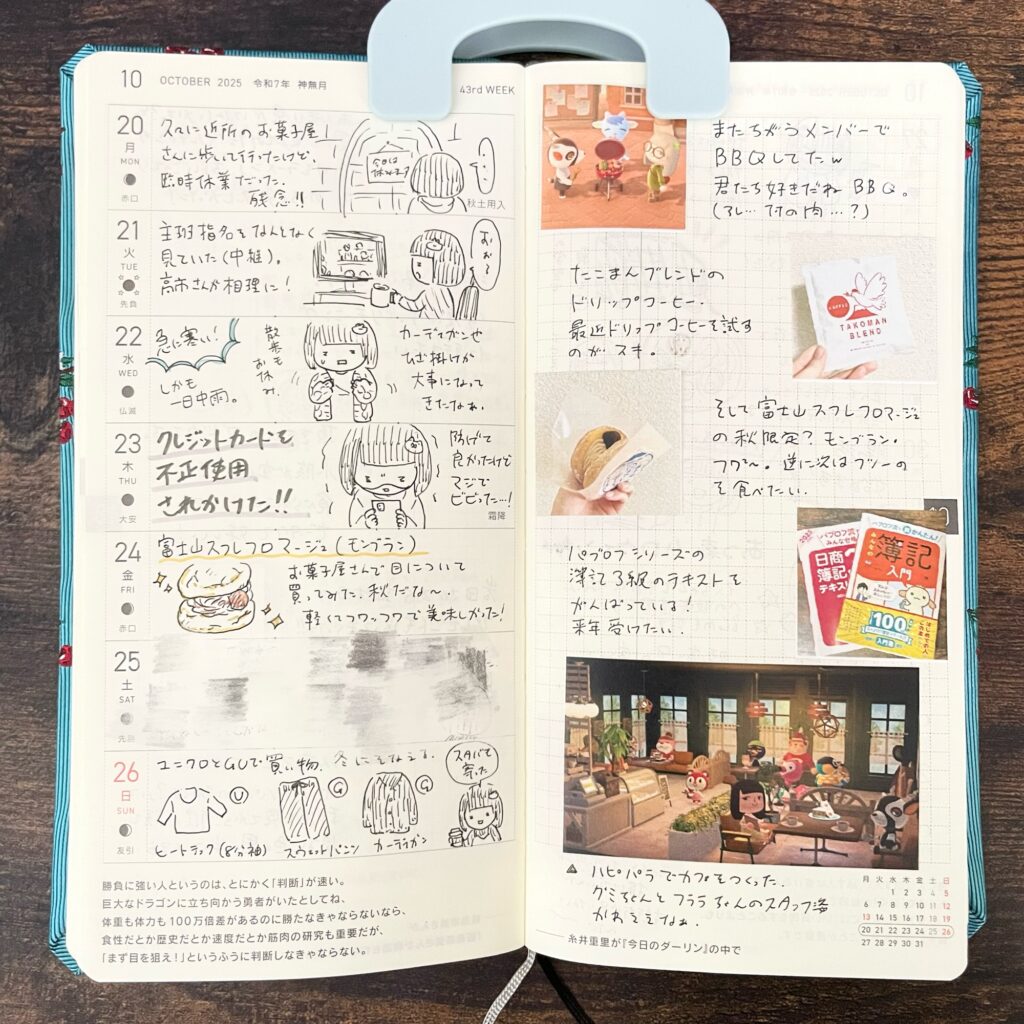 10 OCTOBER 2025 令和7年 神無月
43rd WEEK
20
月
MON
赤口
久々に近所のお菓子屋
さんに歩いて行ったけど、
臨時休業だった.
残念!!
今日は
休みます
秋土用入
21
火
TUE
先負
主班指名をなんとなく
見ていた(中継)。
高市さんが相理に!
おお〜
22
水
WED
仏滅
急に寒い!
しかも
一日中雨。
散歩もお休み.
カーディガンや
ひざ掛けが
大事になって
きたなぁ.
23
木
THU
大安
クレジットカードを
不正使用
されかけた!!
防げて
良かったけど
マジで
ビビった…!
霜降
24
金
FRI
赤口
富士山スフレフロマージュ(モンブラン)
お菓子屋さんで目について
買ってみた. 秋だな〜.
軽くてフワッフワで美味しかった!
25
土
SAT
先勝
26
日
SUN
友引
ユニクロとGUで買い物. 冬にそなえる.
スタバで
寄った
U
G
G
ヒートテック(8分袖)
スウェットパンツ
カーディガン
勝負に強い人というのは、とにかく「判断」が速い。
巨大なドラゴンに立ち向かう勇者がいたとしてね、
体重も体力も100万倍差があるのに勝たなきゃならないなら、
食性だとか歴史だとか速度だとか筋肉の研究も重要だが、
「まず目を狙え!」というふうに判断しなきゃならない。
またちがうメンバーで
BBQしてたw
君たち好きだね BBQ。
たこまんブレンドの
ドリップコーヒー.
最近ドリップコーヒーを試す
のがスキ。
COFFEE
TAKOMAN
BLEND
そして富士山スフレフロマージュ
の秋限定? モンブラン.
フワ〜. 逆に次はフツーの
を食べたい.
10
パブロフシリーズの
簿記3級のテキストを
がんばっている!
来年受けたい.
パブロフ流で
みんな合格
日商
簿記
テキスト
パブロフ流でかんたん!
みんなの
簿記
入門
100
ハピパラでカフェをつくった.
グミちゃんとフララちゃんのスタッフ姿
かわええなぁ.
糸井重里が『今日のダーリン』の中で
月 火 水 木 金 土 日
1 2 3 4 5
6 7 8 9 10 11 12
13 14 15 16 17 18 19
20 21 22 23 24 25 26
27 28 29 30 31